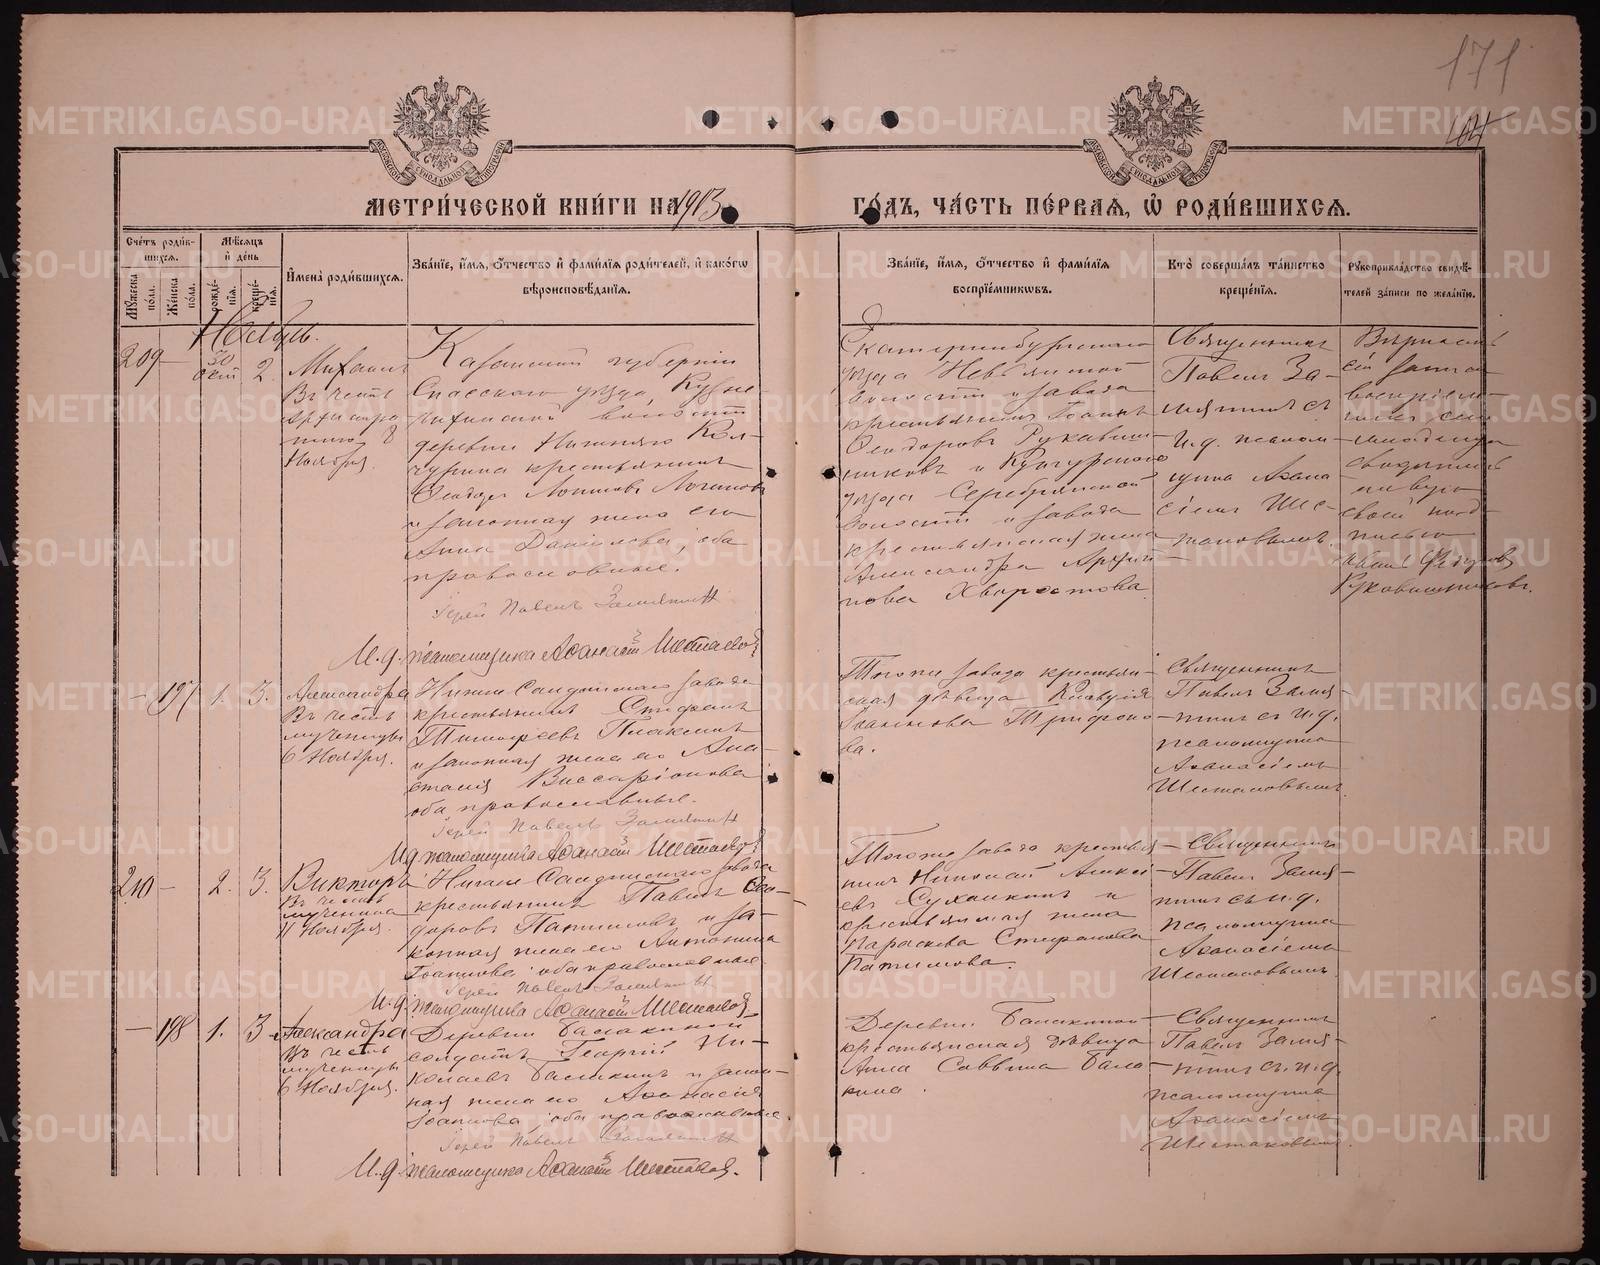 171
МЕТРИ́ЧЕСКОЙ КНИ́ГИ НА 1913 ГО́ДЪ, ЧА́СТЬ ПЕ́РВАЯ, Ѡ҆ РОДИ́ВШИХСЯ.
Сче́тъ роди́в-
шихся.
Му́жеска по́ла.
Же́нска по́ла.
Мѣ́сяцъ и҆ де́нь
рожде́-
нїя.
креще́-
нїя.
И҆мена̀ роди́вшихся.
Зва́нїе, и҆́мя, ѻ҆́тчество и҆ фами́лїя роди́телей, и҆ како́гѡ
вѣроисповѣ́данїя.
Зва́нїе, и҆́мя, ѻ҆́тчество и҆ фами́лїя
воспрїе́мниковъ.
Кто̀ соверша́лъ та́инство
креще́нїя.
Рꙋкоприкла́дство свидѣ́-
телей за́писи по жела́нїю.
Ноябрь.
209 —
30
окт
2.
Михаилъ
Въ честь
Архистра
тига 8
Ноября.
Казанской губерніи
Спасскаго уѣзда, Кузне-
чихинской волости
деревни Нижняго Кол-
чурина крестьянинъ
Ѳеодоръ Логиновъ
и законная жена его
Анна Данилова, оба
православные.
Іерей Павелъ Замятинъ
И. д. псаломщика Аѳанасій Шестаковъ
Екатеринбургскаго
уѣзда Невьянской
волости и завода
крестьянинъ Іоаннъ
Ѳеодоровъ Рукавиш-
никовъ и Кунгурскаго
уѣзда Серебрянской
волости и завода
крестьянская жена
Александра Архип-
пова Хворостова
Священникъ
Павелъ За-
мятинъ съ
и. д. псалом-
щика Аѳана
сіемъ Шес-
таковымъ.
сей записи
воспріем-
никъ
младенца
своей под-
писью
Иванъ Федоровъ
Рукавишниковъ.
— 197 1. 3.
Александра
Въ честь
мученицы
6 Ноября.
Нижне Салдинскаго завода
крестьянинъ Стефанъ
Тимофеевъ Плаксинъ
и законная жена его Ана-
стасія Виссаріонова
оба православные.
Іерей Павелъ Замятинъ
И. д. псаломщика Аѳанасій Шестаковъ
Того же завода крестьян-
ская дѣвица Клавдія
Іоаннова Трифоно-
ва.
Священникъ
Павелъ Замя-
тинъ съ и. д.
псаломщика
Аѳанасіемъ
Шестаковымъ.
210 — 2. 3.
Викторъ
Въ честь
мученика
11 Ноября.
Нижне Салдинскаго завода
крестьянинъ Павелъ Ѳео-
доровъ Патимовъ и за-
конная жена его Антонина
Іоаннова оба православные
Іерей Павелъ Замятинъ
И. д. псаломщика Аѳанасій Шестаковъ
Того же завода крестья-
нинъ Николай Алексѣ-
евъ Суханкинъ и
крестьянская жена
Параскева Стефанова
Патимова.
Священникъ
Павелъ Замя-
тинъ съ и. д.
псаломщика
Аѳанасіемъ
Шестаковымъ.
— 198 1. 3
Александра
Въ честь
мученицы
6 Ноября.
Деревни Балакиной
солдатъ Георгій Ни-
колаевъ Балакинъ и закон-
ная жена его Аѳанасія
Іоаннова, оба православные.
Іерей Павелъ Замятинъ
И. д. псаломщика Аѳанасій Шестаковъ.
Деревни Балакиной
крестьянская дѣвица
Анна Саввина Бала-
кина.
Священникъ
Павелъ Замя-
тинъ съ и. д.
псаломщика
Аѳанасіемъ
Шестаковымъ.
METRIKI.GASO-URAL.RU